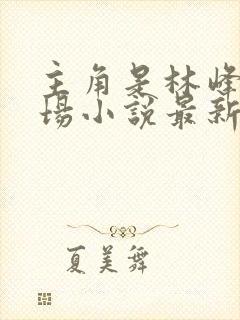 主角是林峰
场小说最新
夏美舞